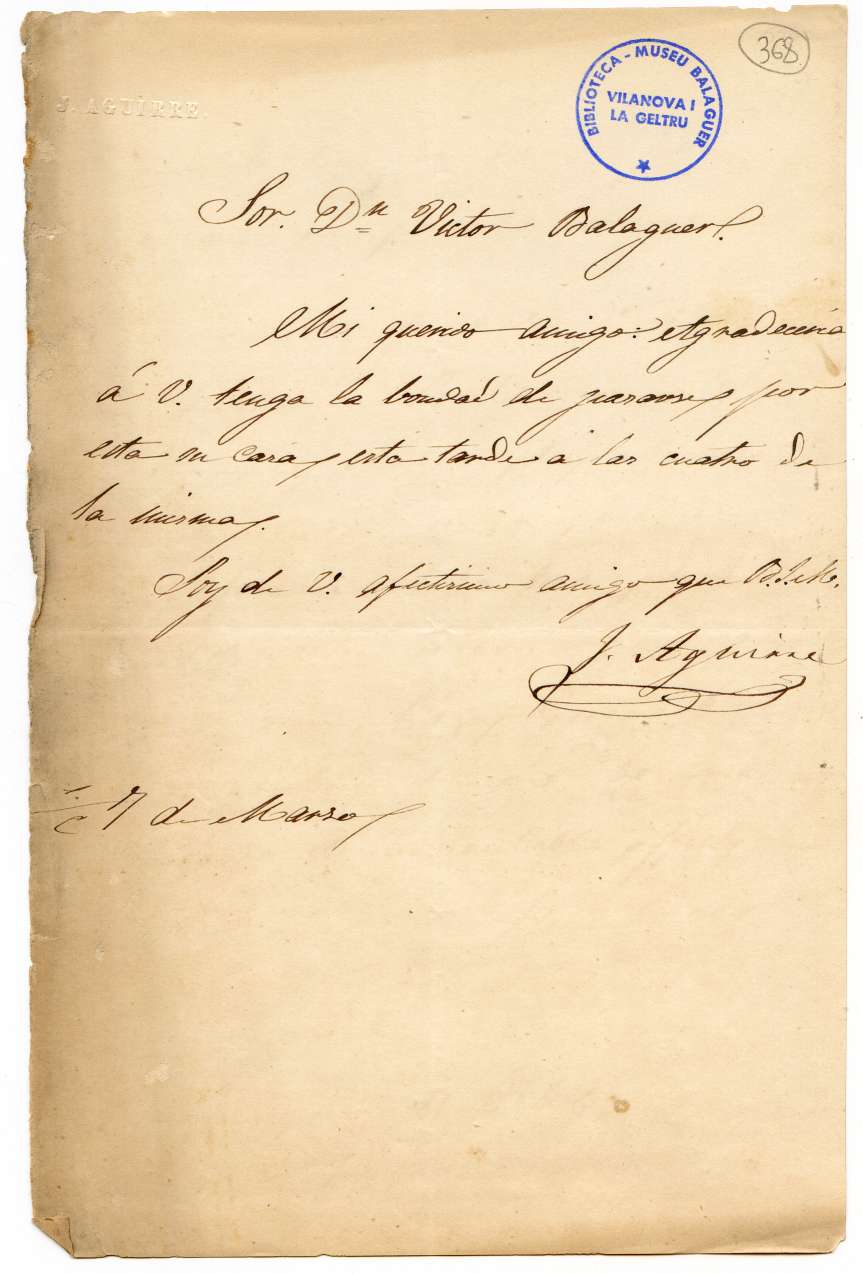 368
BIBLIOTECA - MUSEU BALAGUER
VILANOVA I
LA GELTRU
J. AGUIRRE.
Sor. Dn Victor Balaguer.
Mi querido amigo: Agradeceria
á V. tenga la bondad de pasarse por
esta su casa esta tarde á las cuatro de
la misma.
Soy de V. afectisimo amigo que B.S.M.
J. Aguirre
S/C 7 de Marzo